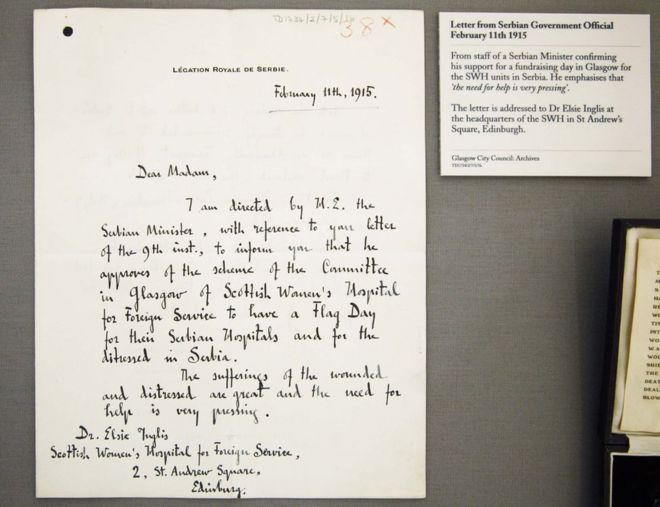 TD1734/2/7/5/26
38 x
LÉGATION ROYALE DE SERBIE.
February 11th, 1915.
Dear Madam,
I am directed by H.E. the
Serbian Minister, with reference to your letter
of the 9th inst., to inform you that he
approves of the scheme of the Committee
in Glasgow of Scottish Women's Hospital
for Foreign Service to have a Flag Day
for their Serbian Hospitals and for the
ditressed in Serbia.
The sufferings of the wounded
and distressed are great and the need for
help is very pressing.
Dr. Elsie Inglis
Scottish Women's Hospital for Foreign Service,
2, St. Andrew Square,
Edinburg.
Letter from Serbian Government Official
February 11th 1915
From staff of a Serbian Minister confirming
his support for a fundraising day in Glasgow for
the SWH units in Serbia. He emphasises that
'the need for help is very pressing'.
The letter is addressed to Dr Elsie Inglis at
the headquarters of the SWH in St Andrew's
Square, Edinburgh.
Glasgow City Council: Archives